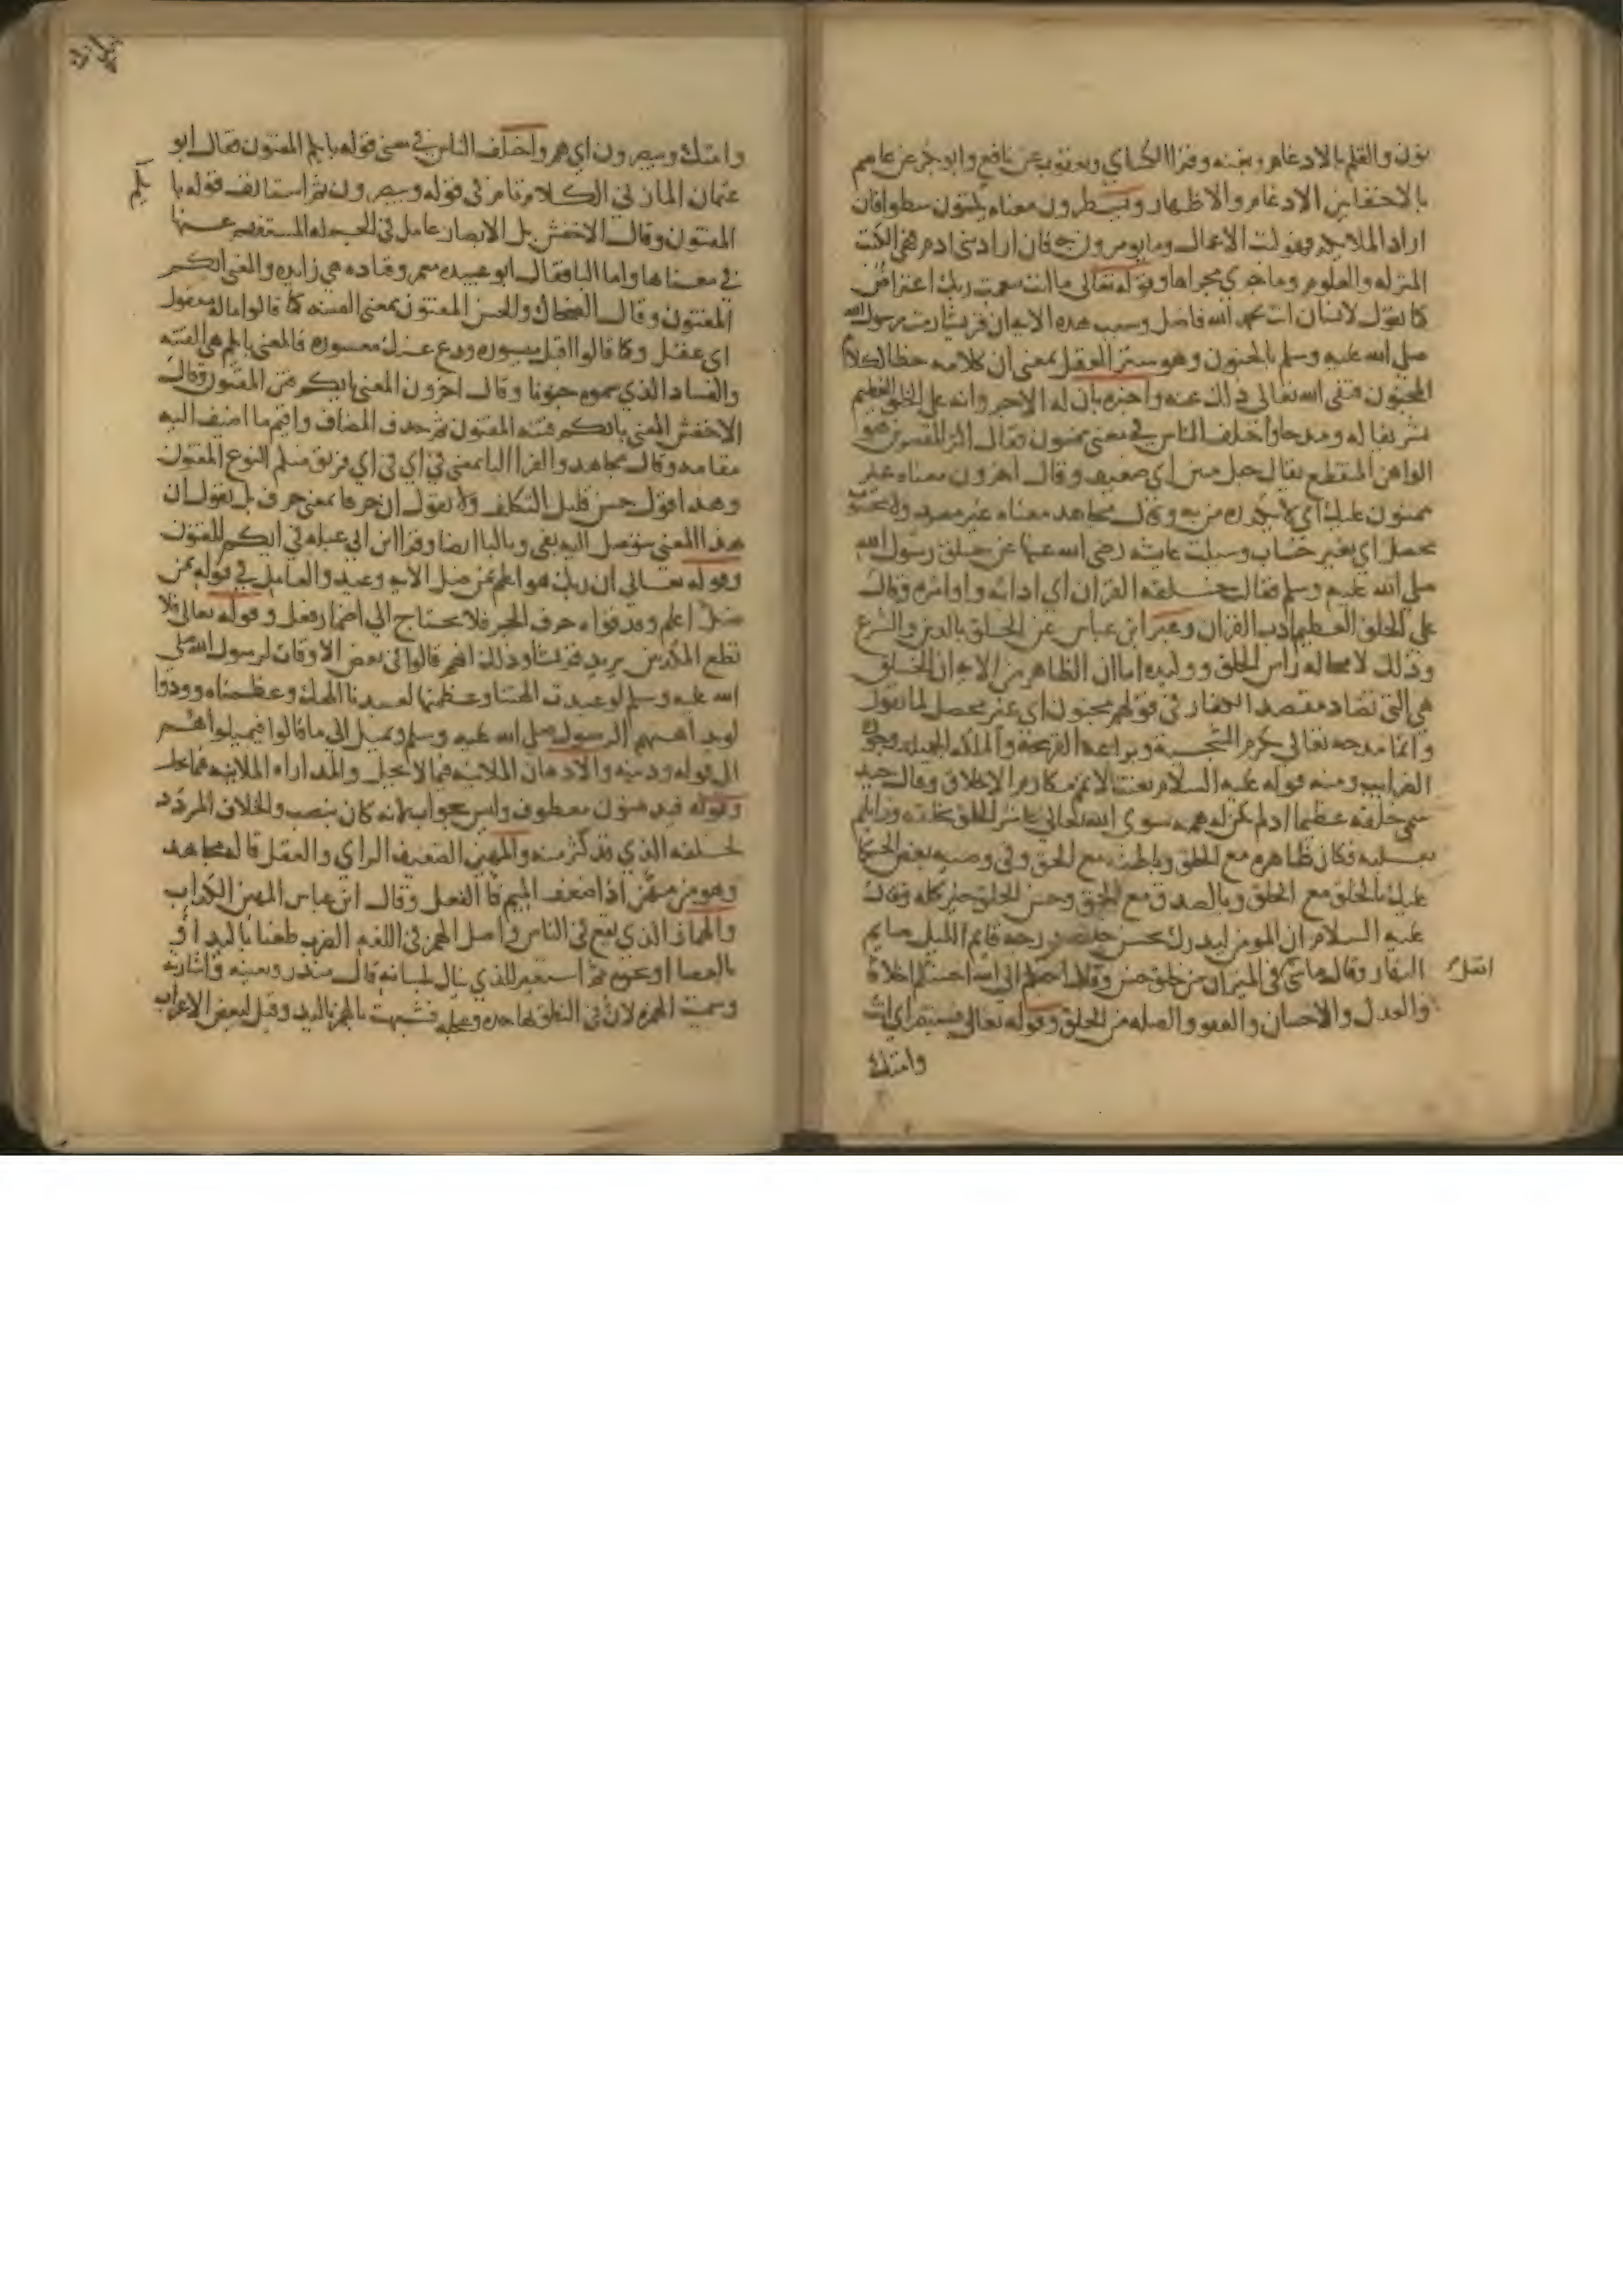 نون والقلم بالادغام وبغنه وقرا الكساي ويعقوب عن نافع وابو بكر عن عاصم
بالاخفا بين الادغام والاظهار ويسطرون معناه يكتبون سطورا فان
اراد الملايكه فهو كتب الاعمال وما يومرون به وان اراد بني ادم فهي الكتب
المنزله والعلوم وما جرى مجراها وقوله تعالى ما انت بنعمت ربك اعتراض
كما تقول لانسان انت بحمد الله فاضل وسبب هذه الايه ان قريشا رمت رسول الله
صلى الله عليه وسلم بالجنون وهو ستر العقل بمعنى ان كلامه خطا ككلام
المجنون فنفى الله تعالى ذلك عنه واخبره بان له الاجر وانه على الخلق العظيم
تشريفا له ومدحا واختلف الناس في معنى ممنون فقال اكثر المفسرين هو
الواهن المنقطع يقال حبل منين اي ضعيف وقال اخرون معناه غير
ممنون عليك اي لا يكدره من به وقال مجاهد معناه غير مصرد ولا محسوب
محصل اي بغير حساب وسيلت عايشه رضي الله عنها عن خلق رسول الله
صلى الله عليه وسلم فقالت خلقه القران اي ادابه واوامره وقال
علي الخلق العظيم ادب القران وعبر ابن عباس عن الخلق بالدين والشرع
وذلك لا محاله راس الخلق ووكيده اما ان الظاهر من الايه ان الخلق
هي التي تضاد مقصد الكفار في قولهم مجنون اي غير محصل لما يقول
وانما مدحه تعالى بكرم السجيه وبراعه القريحه والملكه الجميله وجوده
الضرايب ومنه قوله عليه السلام بعثت لاتمم مكارم الاخلاق وقال جنيد
سمي خلقه عظيما اذ لم تكن له همه سوى الله تعالى عاشر الخلق بخلقه وزايلهم
بقلبه فكان ظاهره مع الخلق وباطنه مع الحق وفي وصيه بعض الحكما
عليك بالخلق مع الخلق وبالصدق مع الحق وحسن الخلق خير كله وقال
عليه السلام ان المومن ليدرك بحسن خلقه درجه قايم الليل صايم
النهار وقال ما شي في الميزان من خلق حسن وقال احبكم الى الله احسنكم اخلاقا
اثقل
والعدل والاحسان والعفو والصله من الخلق وقوله تعالى فستبصر اي انت
وامتك
وامتك ويبصرون اي هم واختلف الناس في معنى قوله بايكم المفتون فقال ابو
عثمان المازني الكلام تام في قوله ويبصرون ثم استانف قوله با
يكم
المفتون وقال الاخفش بل الابصار عامل في الجمله المستفهم عنها
في معناها واما البا فقال ابو عبيده معمر وقتاده هي زايده والمعنى ايكم
المفتون وقال الضحاك والحسن المفتون بمعنى الفتنه كما قالوا ما له معقول
اي عقل وكما قالوا اقبل ميسوره ودع عنك معسوره فالمعنى بايكم هي الفتنه
والفساد الذي سموه جنونا وقال اخرون المعنى بايكم فتن المفتون وقال
الاخفش المعنى بايكم فتنه المفتون ثم حذف المضاف واقيم ما اضيف اليه
مقامه وقال مجاهد والفرا البا بمعنى في اي في اي فريق منكم النوع المفتون
وهذا قول حسن قليل التكلف ولا نقول ان حرفا بمعنى حرف بل نقول ان
هذا المعنى يتوصل اليه بفي وبالبا ايضا وقرا ابن ابي عبله في ايكم المفتون
وقوله تعالى ان ربك هو اعلم بمن ضل الايه وعيد والعامل في قوله بمن
ضل اعلم وقد قواه حرف الجر فلا يحتاج الى اضمار فعل وقوله تعالى فلا
تطع المكذبين يريد قريشا وذلك انهم قالوا في بعض الاوقات لرسول الله صلى
الله عليه وسلم لو عبدت الهتنا وعظمتها لعبدنا الهك وعظمناه وودوا
لو يداهنهم الرسول صلى الله عليه وسلم ويميل الى ما قالوا فيميلوا هم
الى قوله ودينه والادهان الملاينه فيما لا يحل والمداراه الملاينه فيما يحل
وقوله فيدهنون معطوف وليس بجواب لانه كان ينصب والحلاف المردد
لحلفه الذي قد كثر منه والمهين الضعيف الراي والعقل قاله مجاهد
وهو من مهن اذا ضعف الميم فا الفعل وقال ابن عباس المهين الكذاب
والهماز الذي يقع في الناس واصل الهمز في اللغه الضرب طعنا باليد او
بالعصا او نحوه ثم استعير للذي ينال بلسانه قال منذر وبعينه واشارته
وسميت الهمزه لان في النطق بها حده وعجله فشبهت بالهمز باليد وقيل لبعض الاعراب